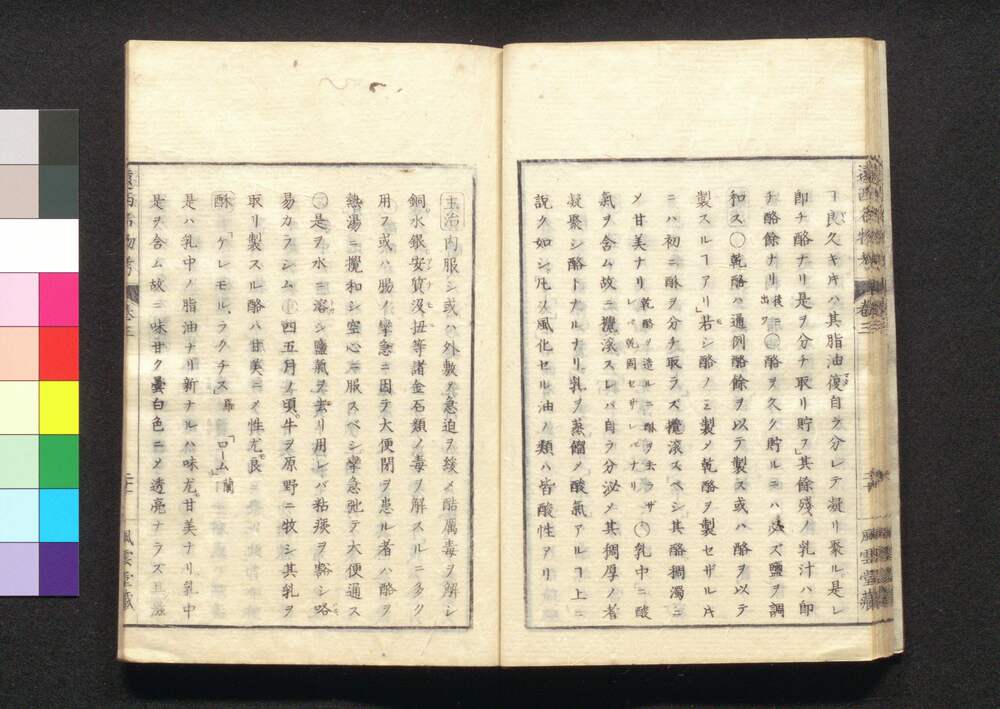 ヿ良久キキハ其脂油復自ラ分レテ凝リ聚ル是レ
即チ酪ナリ是ヲ分チ取リ貯フ其餘殘ノ乳汁ハ即
チ酪餘ナリ後ニ出ツ〇酪ヲ久ク貯ルニハ必ズ鹽ヲ調
和ス〇乾酪ハ通例酪餘ヲ以テ製ス或ハ酪ヲ以テ
製スルヿアリ若シ酪ノミ製メ乾酪ヲ製セザルキ
ニハ初ニ酥ヲ分チ取ラズ攪滾スベシ其酪稠濁ニ
メ甘美ナリ乾酪ヲ造ルニ酥ヲ去ラザレバ乾固セザレバナリ〇乳中ニ酸
氣ヲ含ム故ニ攪滾スレバ自ラ分泌メ其稠厚ノ者
凝聚シ酪トナルナリ乳ヲ蒸餾メ酸氣アルヿ上ニ
說ク如シ凡ソ風化セル油ノ類ハ皆酸性アリ
遠西
卷三
風雲堂藏
主治內服シ或ハ外敷メ急迫ヲ緩メ酷厲毒ヲ解シ
銅水銀安質沒扭等諸金石類ノ毒ヲ解スルニ多ク
用フ或ハ腸ノ攣急ニ因テ大便閉ヲ患ル者ハ酪ヲ
熱湯ニ攪和シ空心ニ服スベシ攣急弛テ大便通ス
〇是ヲ水ニ溶シ鹽氣ヲ去リ用レバ粘痰ヲ豁シ咯
易カラシム〇四五月ノ頃牛ヲ原野ニ牧シ其乳ヲ
取リ製スル酪ハ甘美ニメ性尤良
酥「ケレモル、ラクチス」羅「ローム」蘭
是ハ乳中ノ脂油ナリ新ナルハ味尤甘美ナリ乳中
是ヲ含ム故ニ味甘ク曇白色ニメ透亮ナラズ且滋
遠西
卷三
風雲堂藏